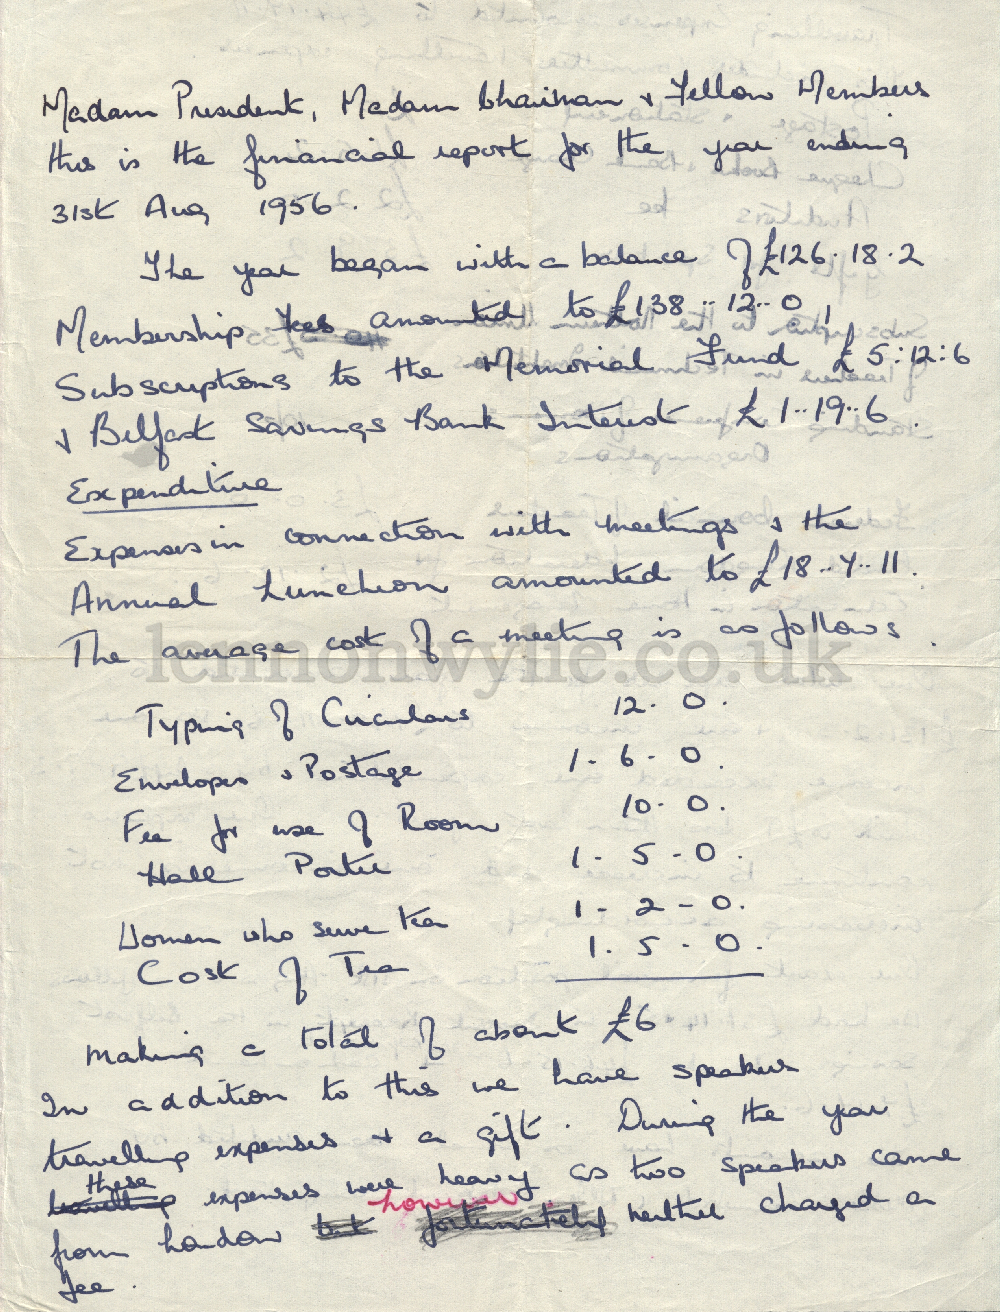 Madam President, Madam Chairman & Fellow Members
this is the financial report for the year ending
31st Aug 1956.
The year began with a balance of £126.18.2
Membership fees amounted to £138..12..0,
Subscriptions to the Memorial Fund £5:12:6
& Belfast Savings Bank Interest £1..19..6.
Expenditure
Expenses in connection with meetings & the
Annual Luncheon amounted to £18..4..11.
The average cost of a meeting is as follows.
lennonwylie.co.uk
Typing of Circulars 12. 0.
Envelopes & Postage 1 - 6 - 0.
Fee for use of Room 10. 0.
Hall Porter 1 - 5 - 0.
Women who serve tea 1 - 2 - 0.
Cost of Tea 1. 5 - 0.
making a total of about £6
In addition to this we have speakers
travelling expenses & a gift. During the year
travelling these expenses were heavy as two speakers came
from London but however fortunately neither charged a
fee.